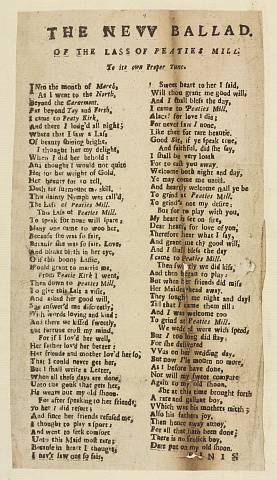 THE NEVV BALLAD.
OF THE LASS OF PEATIES MILL.
To its own Proper Tune.
INto the month of March,
As I went to the North,
Beyond the
Far beyond Tay and Forth,
I came to Peaty Kirk,
And there I lodg'd all night;
Where that I saw a Lass
Of beauty shining bright,
I thought her my delight,
When I did her behold:
And thought I would not quit
Her for her weight of Gold,
Her beauty for to tell,
Doth far surmount my skill,
This dainty Nymph was call'd,
The Lass of Peaties Mill.
This Lass of Peaties Mill,
To speak for treat will spare;
Many one came to woo her,
Because she was so fair,
Because she was so fair, Love,
And bleam birth is her eye,
O if this bonny Lassie,
Would grant to marrie me,
From Peatie Kirk I went,
Then down to Peaties Mill,
To give this Lass a visit,
And asked her good will,
She answer'd me discreetly,
With words loving and kind:
And there we kissed sweetly,
But fortune crost my mind,
For if I lov'd her well,
Her father lov'd her better:
Her friends and mother lov'd her so,
That I could never get her,
But I shall write a Letter,
When all these days are done,
Unto the gouk that gets her,
He wears but my old shoon.
For after speaking to her friends,
to her I did resort:
And since her friends refused me,
I thought to play a sport:
And went to seek comfort
Unto this Maid most rare:
Because in heart I thought,
I never saw one so fair,
Sweet heart to her I said,
Will thou grant me good will,
And I shall bless the day,
I came to Peaties Mill.
Alace! for love I die:
For never saw I none,
Like thee for rare beautie.
Good Sir, if ye speak true,
And faithful, did she say,
I shall be very loath
For to call you away.
Welcome both night and day,
Ye may come me until.
And heartly welcome shall ye be
To grind at Peaties Mill.
To grind's not my desire:
But for to play with you,
My heart is set on fire,
Dear heart, for love of you,
Therefore hear what I say,
And grant me thy good will,
And I shall bless the day
I came to Peaties Mill.
Then sweetly we did kiss,
And then began to play:
But when her friends did miss
Her Maidenhead away.
They sought me night and day
Till that I came them till:
And I was welcome too
To grind at Peaties Mill.
We were at work with speed,
But I too long did stay,
For she delivered
VVas on her wedding day.
But now I'm mourn no more,
As I before have done,
Nor will my sweet compare
Again to my old shoon.
She at this time brought forth
A rare and gallant boy,
VVhich was his mothers mirth;
Also his fathers joy,
Then hence away annoy,
For all that hath been done;
There is no feckless boy,
Dare put on my old shoon.
NIS